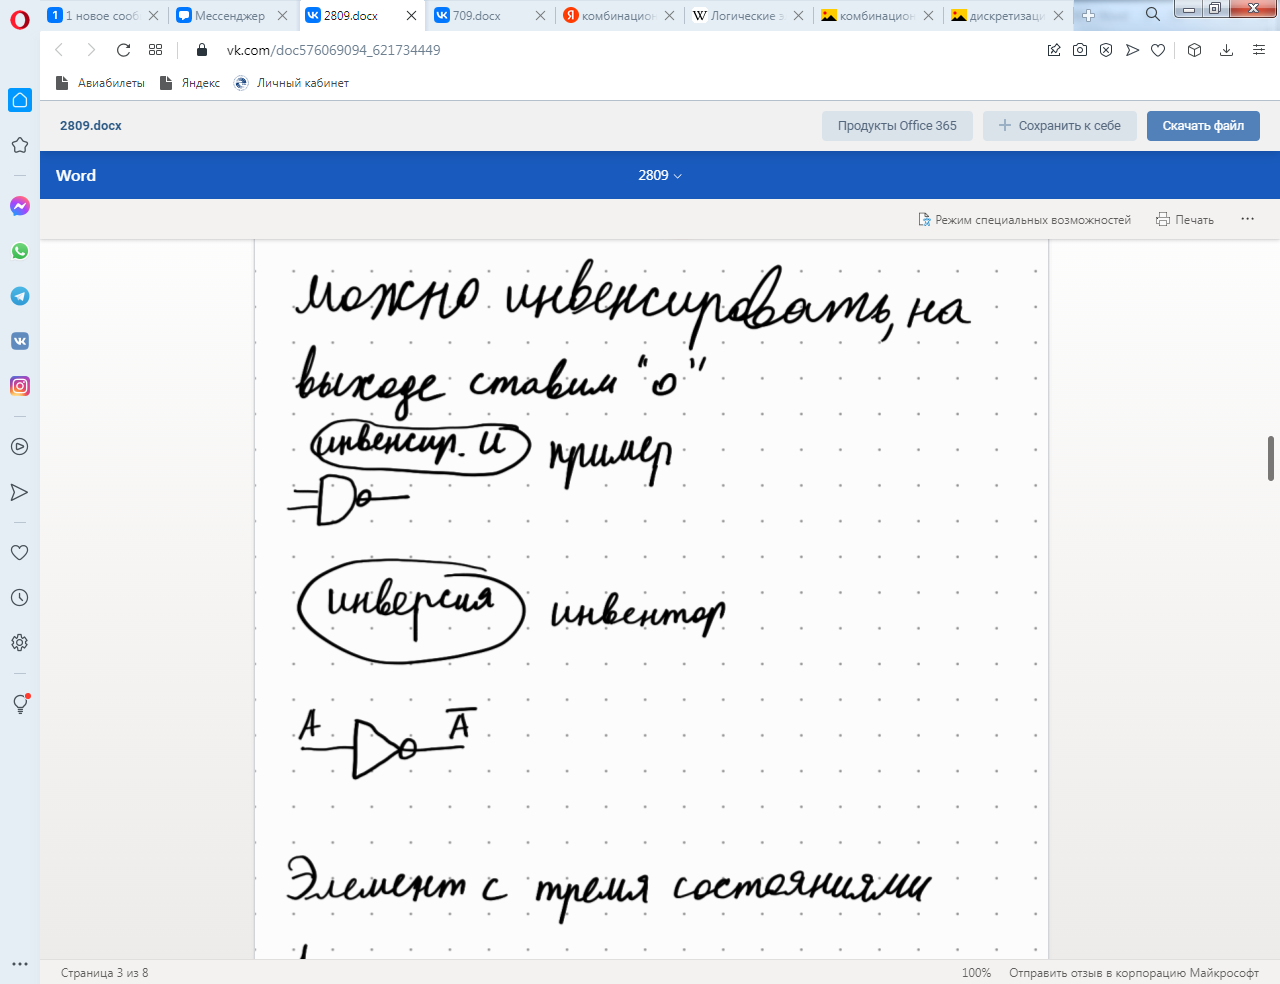 1 новое сооб
Мессенджер
2809.docx
709.docx
комбинацион
Логические э
комбинацион
дискретизаци
vk.com/doc576069094_621734449
Авиабилеты
Яндекс
Личный кабинет
2809.docx
Продукты Office 365
Сохранить к себе
Скачать файл
Word
2809
Режим специальных возможностей
Печать
можно инвенсировать, на
выходе ставим "о"
инвенсир. И пример
инверсия инвентор
A A̅
Элемент с тремя состояниями
Страница 3 из 8
100%
Отправить отзыв в корпорацию Майкрософт